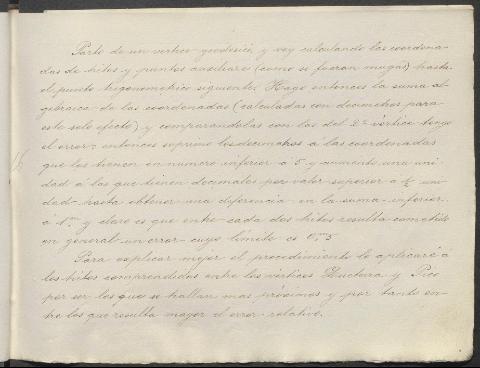 Parto de un vertice geodesico y voy calculando las coordena-
das de hitos y puntos auxiliares (como si fueran mugas) hasta
el punto trigonometrico siguiente. Hago entonces la suma al-
gebraica de las coordenadas (calculadas con decimetros para
este solo efecto) y comparandolas con las del 2º vértice tengo
el error: entonces suprimo los decimetros á las coordenadas
que los tienen en numero inferior á 5 y aumento una uni-
dad á los que tienen decimales por valor superior á ½ uni-
dad hasta obtener una diferencia en la suma inferior
á 1m y claro es que entre cada dos hitos resulta cometido
en general un error cuyo limite es 0,m5
Para esplicar mejor el procedimiento lo aplicaré á
los hitos comprendidos entre los vértices y Pico
por ser los que se hallan mas próximos y por tanto en-
tre los que resulta mayor el error relativo.